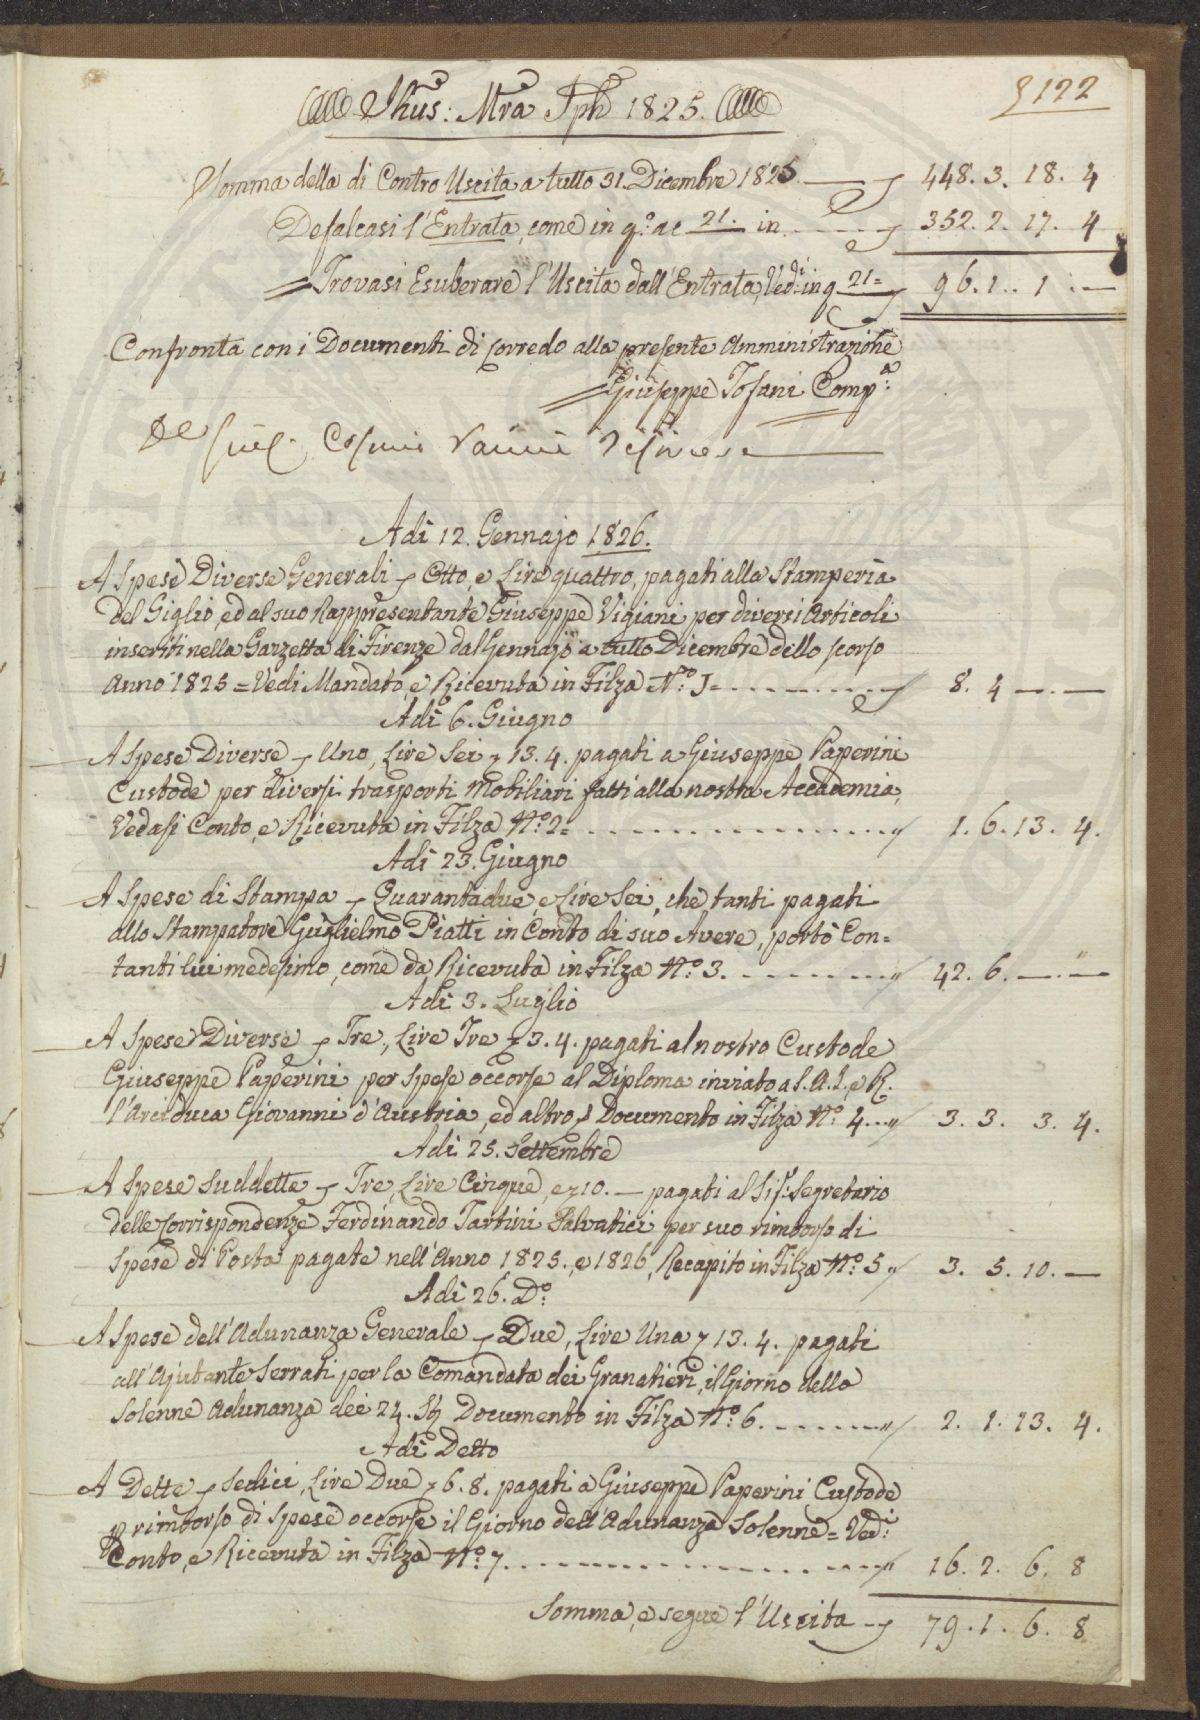 Jhus: Mra Jph 1825.
122
Somma della di Contro Uscita a tutto 31. Dicembre 1825 448. 3. 18. 4
Defalcasi l'Entrata, come in q.o a c 21. in 352. 2. 17. 4
= Trovasi Esuberare l'Uscita dall'Entrata, Vedi in q 21= 96. 1.. 1. —
Confronta con i Documenti di corredo alla presente Amministrazione
= Giuseppe Tofani Comp.a
Cosimo Vanni
Adi 12. Gennajo 1826.
A Spese Diverse Generali Otto, e Lire quattro, pagati alla Stamperia
del Giglio, ed al suo Rappresentante Giuseppe Vigiani per diversi Articoli
inseriti nella Gazzetta di Firenze dal Gennajo a tutto Dicembre dello scorso
Anno 1825 = Vedi Mandato, e Ricevuta in Filza N.o 1= 8. 4 — . —
Adi 6. Giugno
A Spese Diverse Uno, Lire Sei 13. 4. pagati a Giuseppe Paperini
Custode per diversi trasporti Mobiliari fatti alla nostra Accademia,
Vedasi Conto, e Ricevuta in Filza N.o 2= 1. 6. 13. 4.
Adi 23. Giugno
A Spese di Stampa Quarantadue, e Lire Sei, che tanti pagati
allo Stampatore Guglielmo Piatti in Conto di suo Avere, portò Con=
tanti lui medesimo, come da Ricevuta in Filza N.o 3. 42. 6. — . —
Adi 3. Luglio
A Spese Diverse Tre, Lire Tre 3. 4. pagati al nostro Custode
Giuseppe Paperini per spese occorse al Diploma inviato a S. A. I. e R.
l'Arciduca Giovanni d'Austria, ed altro, Documento in Filza N.o 4 3. 3. 3. 4.
Adi 25. Settembre
A Spese Suddette Tre, Lire Cinque, e 10. — pagati al Sig.r Segretario
delle Corrispondenze Ferdinando Tartini Salvatici per suo rimborso di
Spese di Posta pagate nell'Anno 1825. e 1826, Recapito in Filza N.o 5 3. 5. 10. —
Adi 26. D.o
A Spese dell'Adunanza Generale Due, Lire Una 13. 4. pagati
all'Ajutante Serrati per la Comandata dei Granatieri, il Giorno della
Solenne Adunanza dei 24. Documento in Filza N.o 6. 2. 1. 13. 4.
Adi Detto
A Dette Sedici, Lire Due 6. 8. pagati a Giuseppe Paperini Custode
p rimborso di Spese occorse il Giorno dell'Adunanza Solenne = Vedi
Conto, e Ricevuta in Filza N.o 7. 16. 2. 6. 8
Somma, e segue l'Uscita 79. 1. 6. 8